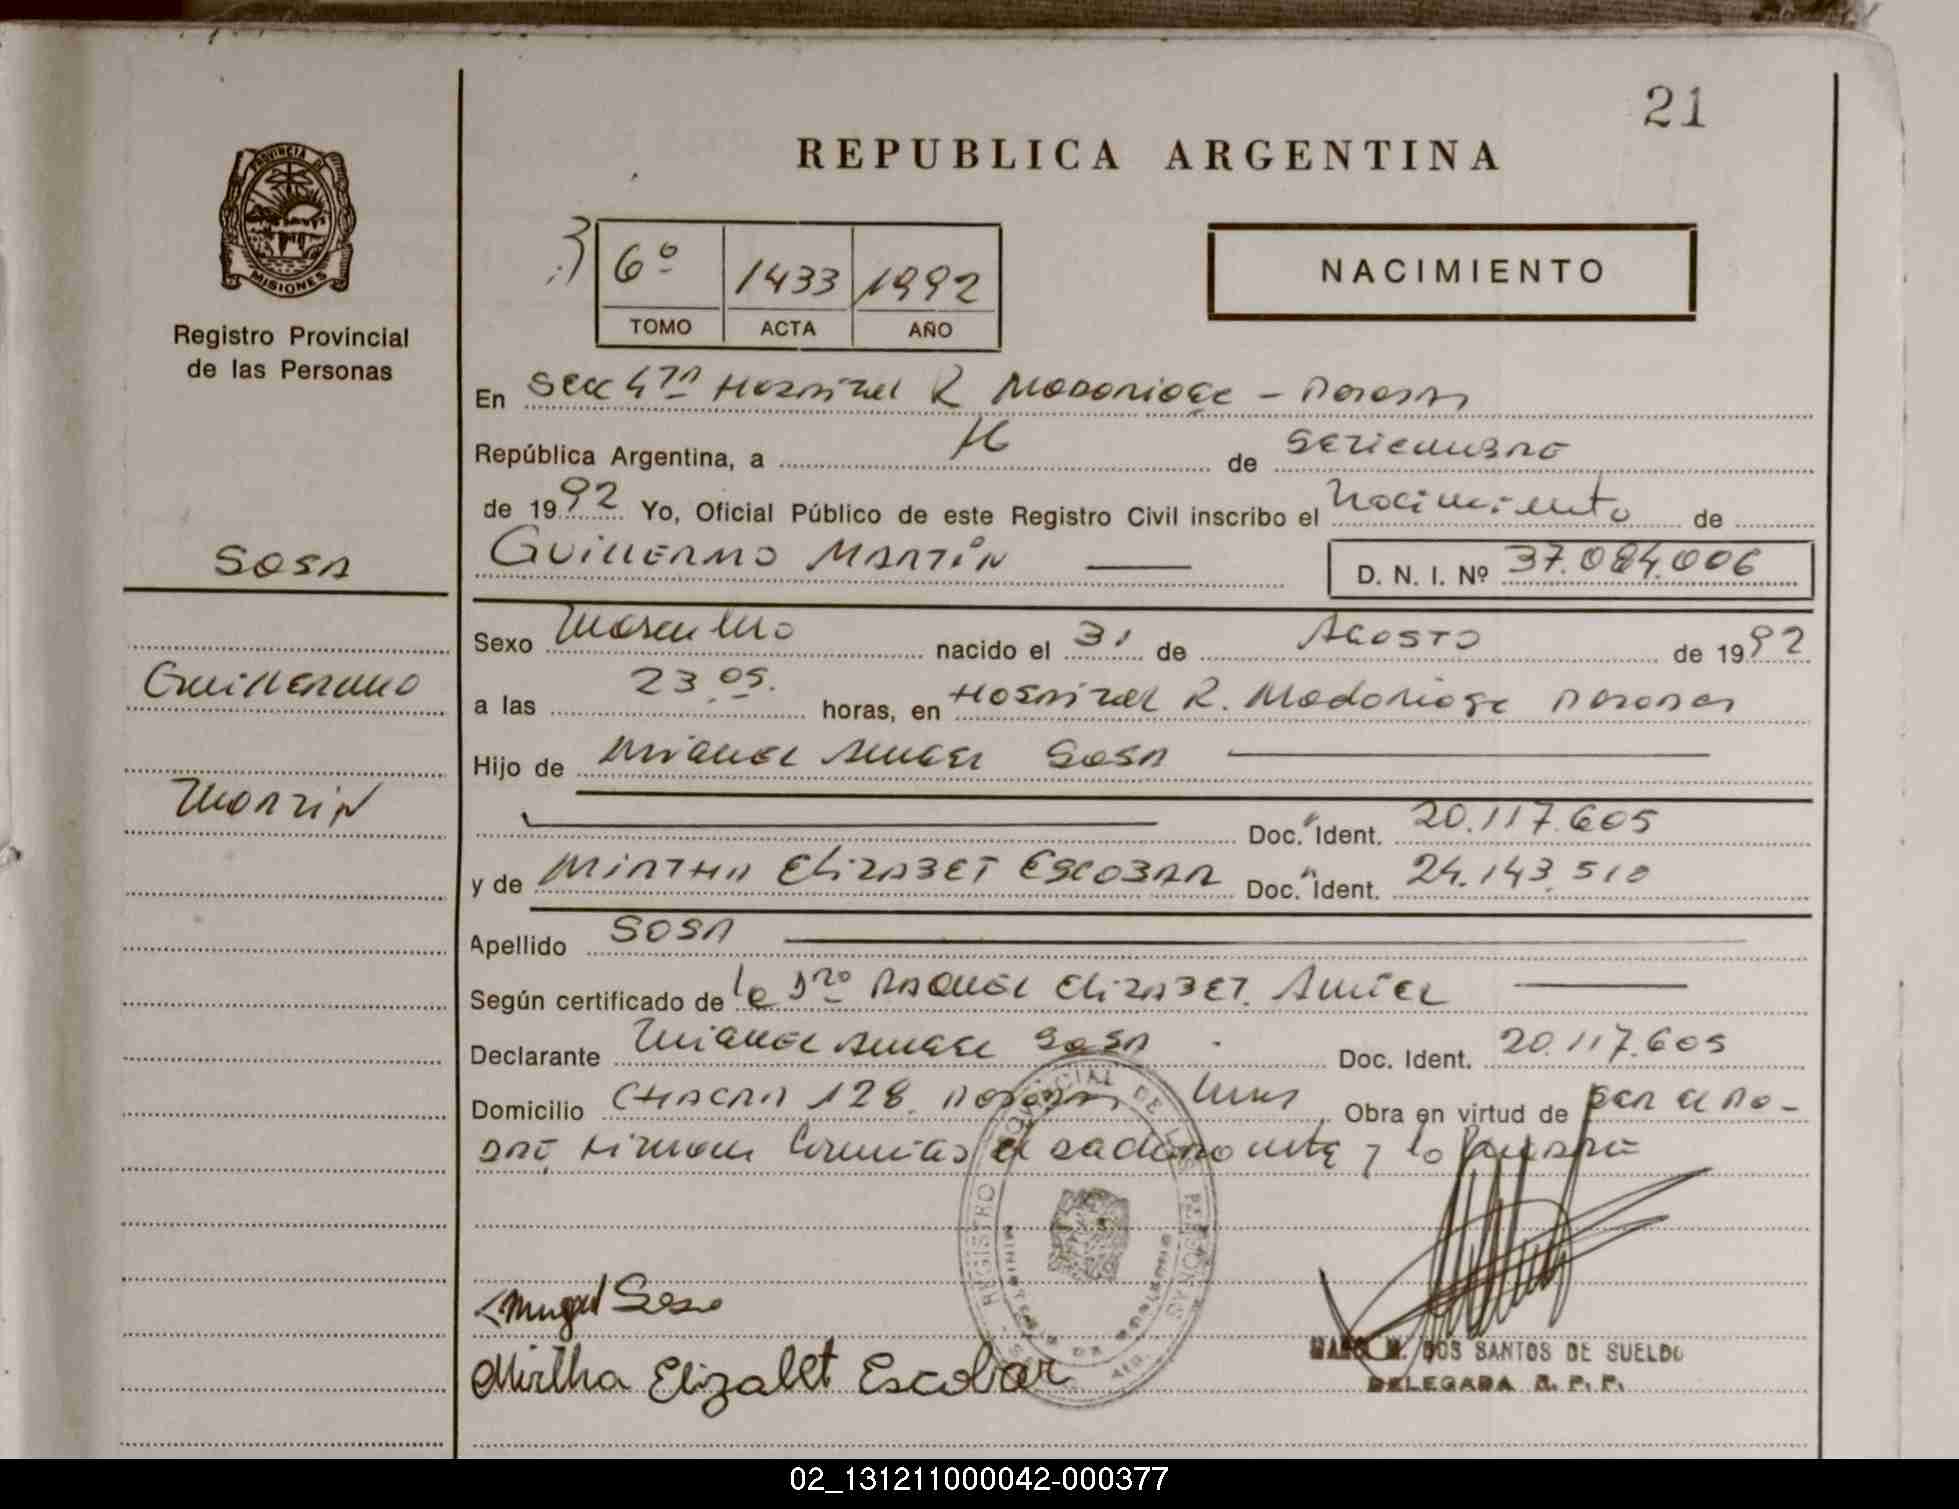 21
REPUBLICA ARGENTINA
PROVINCIA DE
MISIONES
Registro Provincial
de las Personas
6º 1433 1992
TOMO ACTA AÑO
NACIMIENTO
En Secc 4ta Hospital R Madariaga - Posadas
República Argentina, a 16 de Setiembre
de 1992 Yo, Oficial Público de este Registro Civil inscribo el Nacimiento de
SOSA
GUILLERMO MARTÍN D. N. I. Nº 37.084.006
Sexo Masculino nacido el 31 de AGOSTO de 1992
Guillermo
a las 23 05. horas, en Hospital R. Madariaga Posadas
Hijo de MIGUEL ANGEL SOSA
Martin
Doc. Ident. 20.117.605
y de MIRTHA ELIZABET ESCOBAR Doc. Ident. 24.143.510
Apellido SOSA
Según certificado de la Dra RAQUEL ELIZABET
Declarante MIGUEL ANGEL SOSA Doc. Ident. 20.117.605
Domicilio CHACRA 128. Posadas Mnes Obra en virtud de ser el pa-
dre, Firman el y la
REGISTRO PROVINCIAL DE LAS PERSONAS
Miguel Sosa
Mirtha Elizabet Escobar
M. DOS SANTOS DE SUELDO
DELEGADA R. P. P.
02_131211000042-000377